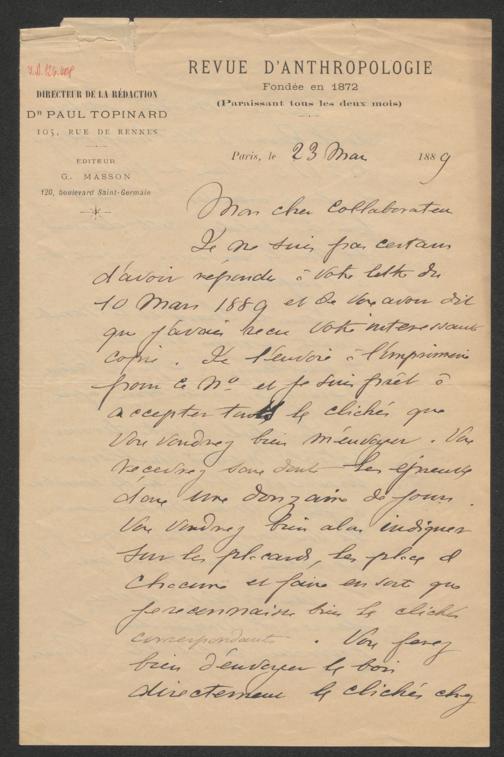 REVUE D'ANTHROPOLOGIE
Fondée en 1872
(Paraissant tous les deux mois)
DIRECTEUR DE LA RÉDACTION
Dr PAUL TOPINARD
105, RUE DE RENNES
EDITEUR
G. MASSON
120, boulevard Saint-Germain
Paris, le 23 Mai 1889
Mon cher Collaborateur
Je ne suis pas certain
d'avoir répondu à votre lettre du
10 Mars 1889 et de vous avoir dit
que j'avais reçu votre interessante
copie. Je l'envoie à l'imprimerie
pour ce No et je suis prêt à
accepter tous les clichés que
vous voudrez bien m'envoyer. Vous
recevrez sans doute les épreuves
dans une douzaine de jours.
Vous voudrez bien alors indiquer
sur les placards, les place d
chacune et faire en sorte que
je reconnaisse bien le cliché
correspondant. Vous ferez
bien d'envoyer le bois
directement le clichés chez